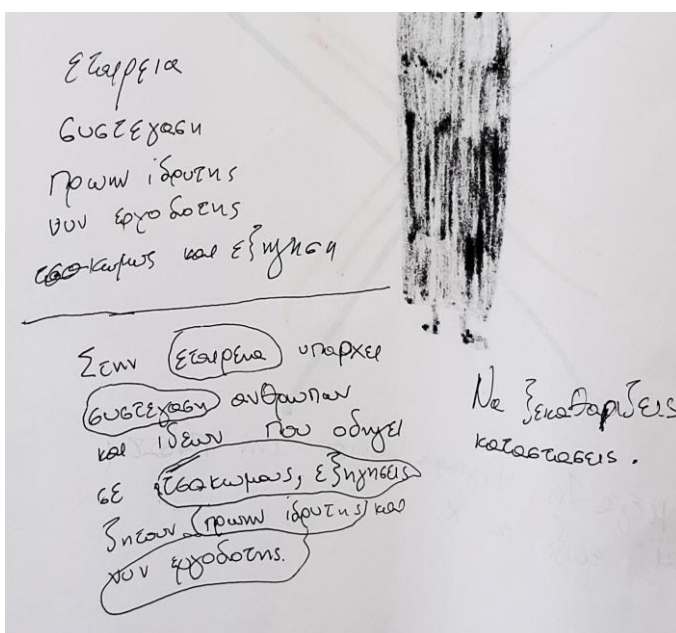 εταιρεια
συστεγαση
πρωην ιδρυτης
νυν εργοδοτης
τσακωμος και εξηγηση
Στην εταιρεια υπαρχει
συστεγαση ανθρωπων
και ιδεων που οδηγει
σε τσακωμους, εξηγησεις
ζητουν πρωην ιδρυτης και
νυν εργοδοτης.
Να ξεκαθαριζεις
καταστασεις.